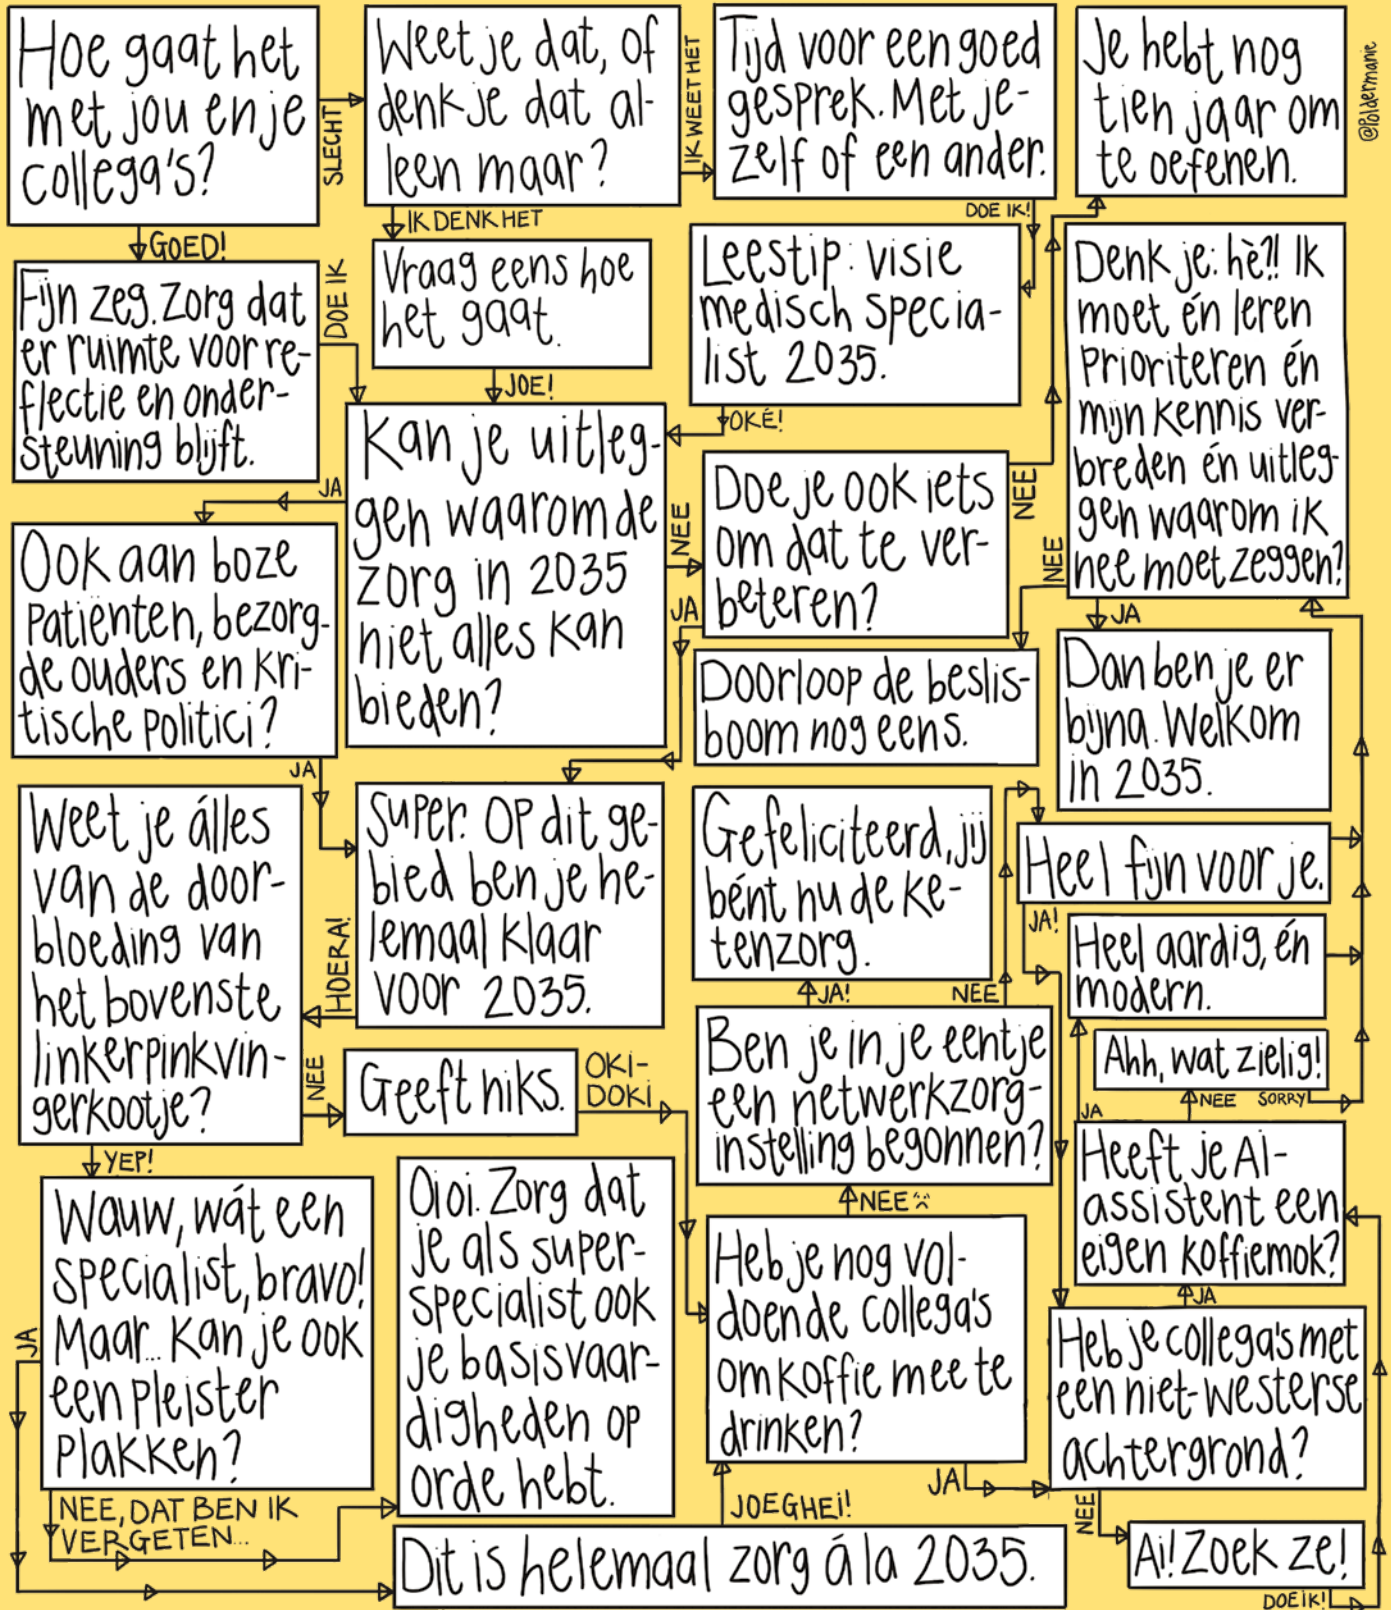 Hoe gaat het
met jou en je
collega's?
SLECHT
GOED!
Weet je dat, of
denk je dat al-
leen maar?
IK WEET HET
IK DENK HET
Tijd voor een goed
gesprek. Met je-
zelf of een ander.
DOE IK!
Je hebt nog
tien jaar om
te oefenen.
@Poldermanie
Fijn zeg. Zorg dat
er ruimte voor re-
flectie en onder-
steuning blijft.
DOE IK
Vraag eens hoe
het gaat.
JOE!
Leestip: visie
medisch specia-
list 2035.
OKÉ!
Denk je: hè?!! Ik
moet én leren
prioriteren én
mijn kennis ver-
breden én uitleg-
gen waarom ik
nee moet zeggen?
NEE
JA
Kan je uitleg-
gen waarom de
zorg in 2035
niet alles kan
bieden?
JA
NEE
Doe je ook iets
om dat te ver-
beteren?
NEE
JA
Ook aan boze
patiënten, bezorg-
de ouders en kri-
tische politici?
JA
Doorloop de beslis-
boom nog eens.
Dan ben je er
bijna. Welkom
in 2035.
Weet je álles
van de door-
bloeding van
het bovenste
linkerpinkvin-
gerkootje?
NEE
YEP!
Super. Op dit ge-
bied ben je he-
lemaal klaar
voor 2035.
HOERA!
Gefeliciteerd, jij
bént nu de ke-
tenzorg.
Heel fijn voor je.
JA!
Heel aardig, én
modern.
Ahh, wat zielig!
SORRY
Geeft niks.
OKI-
DOKI
Ben je in je eentje
een netwerkzorg-
instelling begonnen?
JA!
NEE
Heeft je AI-
assistent een
eigen koffiemok?
JA
NEE
Wauw, wát een
specialist, bravo!
Maar... kan je ook
een pleister
plakken?
JA
NEE, DAT BEN IK
VERGETEN...
Oioi. Zorg dat
je als super-
specialist ook
je basisvaar-
digheden op
orde hebt.
Heb je nog vol-
doende collega's
om koffie mee te
drinken?
NEE
JA
Heb je collega's met
een niet-westerse
achtergrond?
JA
NEE
Dit is helemaal zorg á la 2035.
JOEGHEI!
Ai! Zoek ze!
DOE IK!